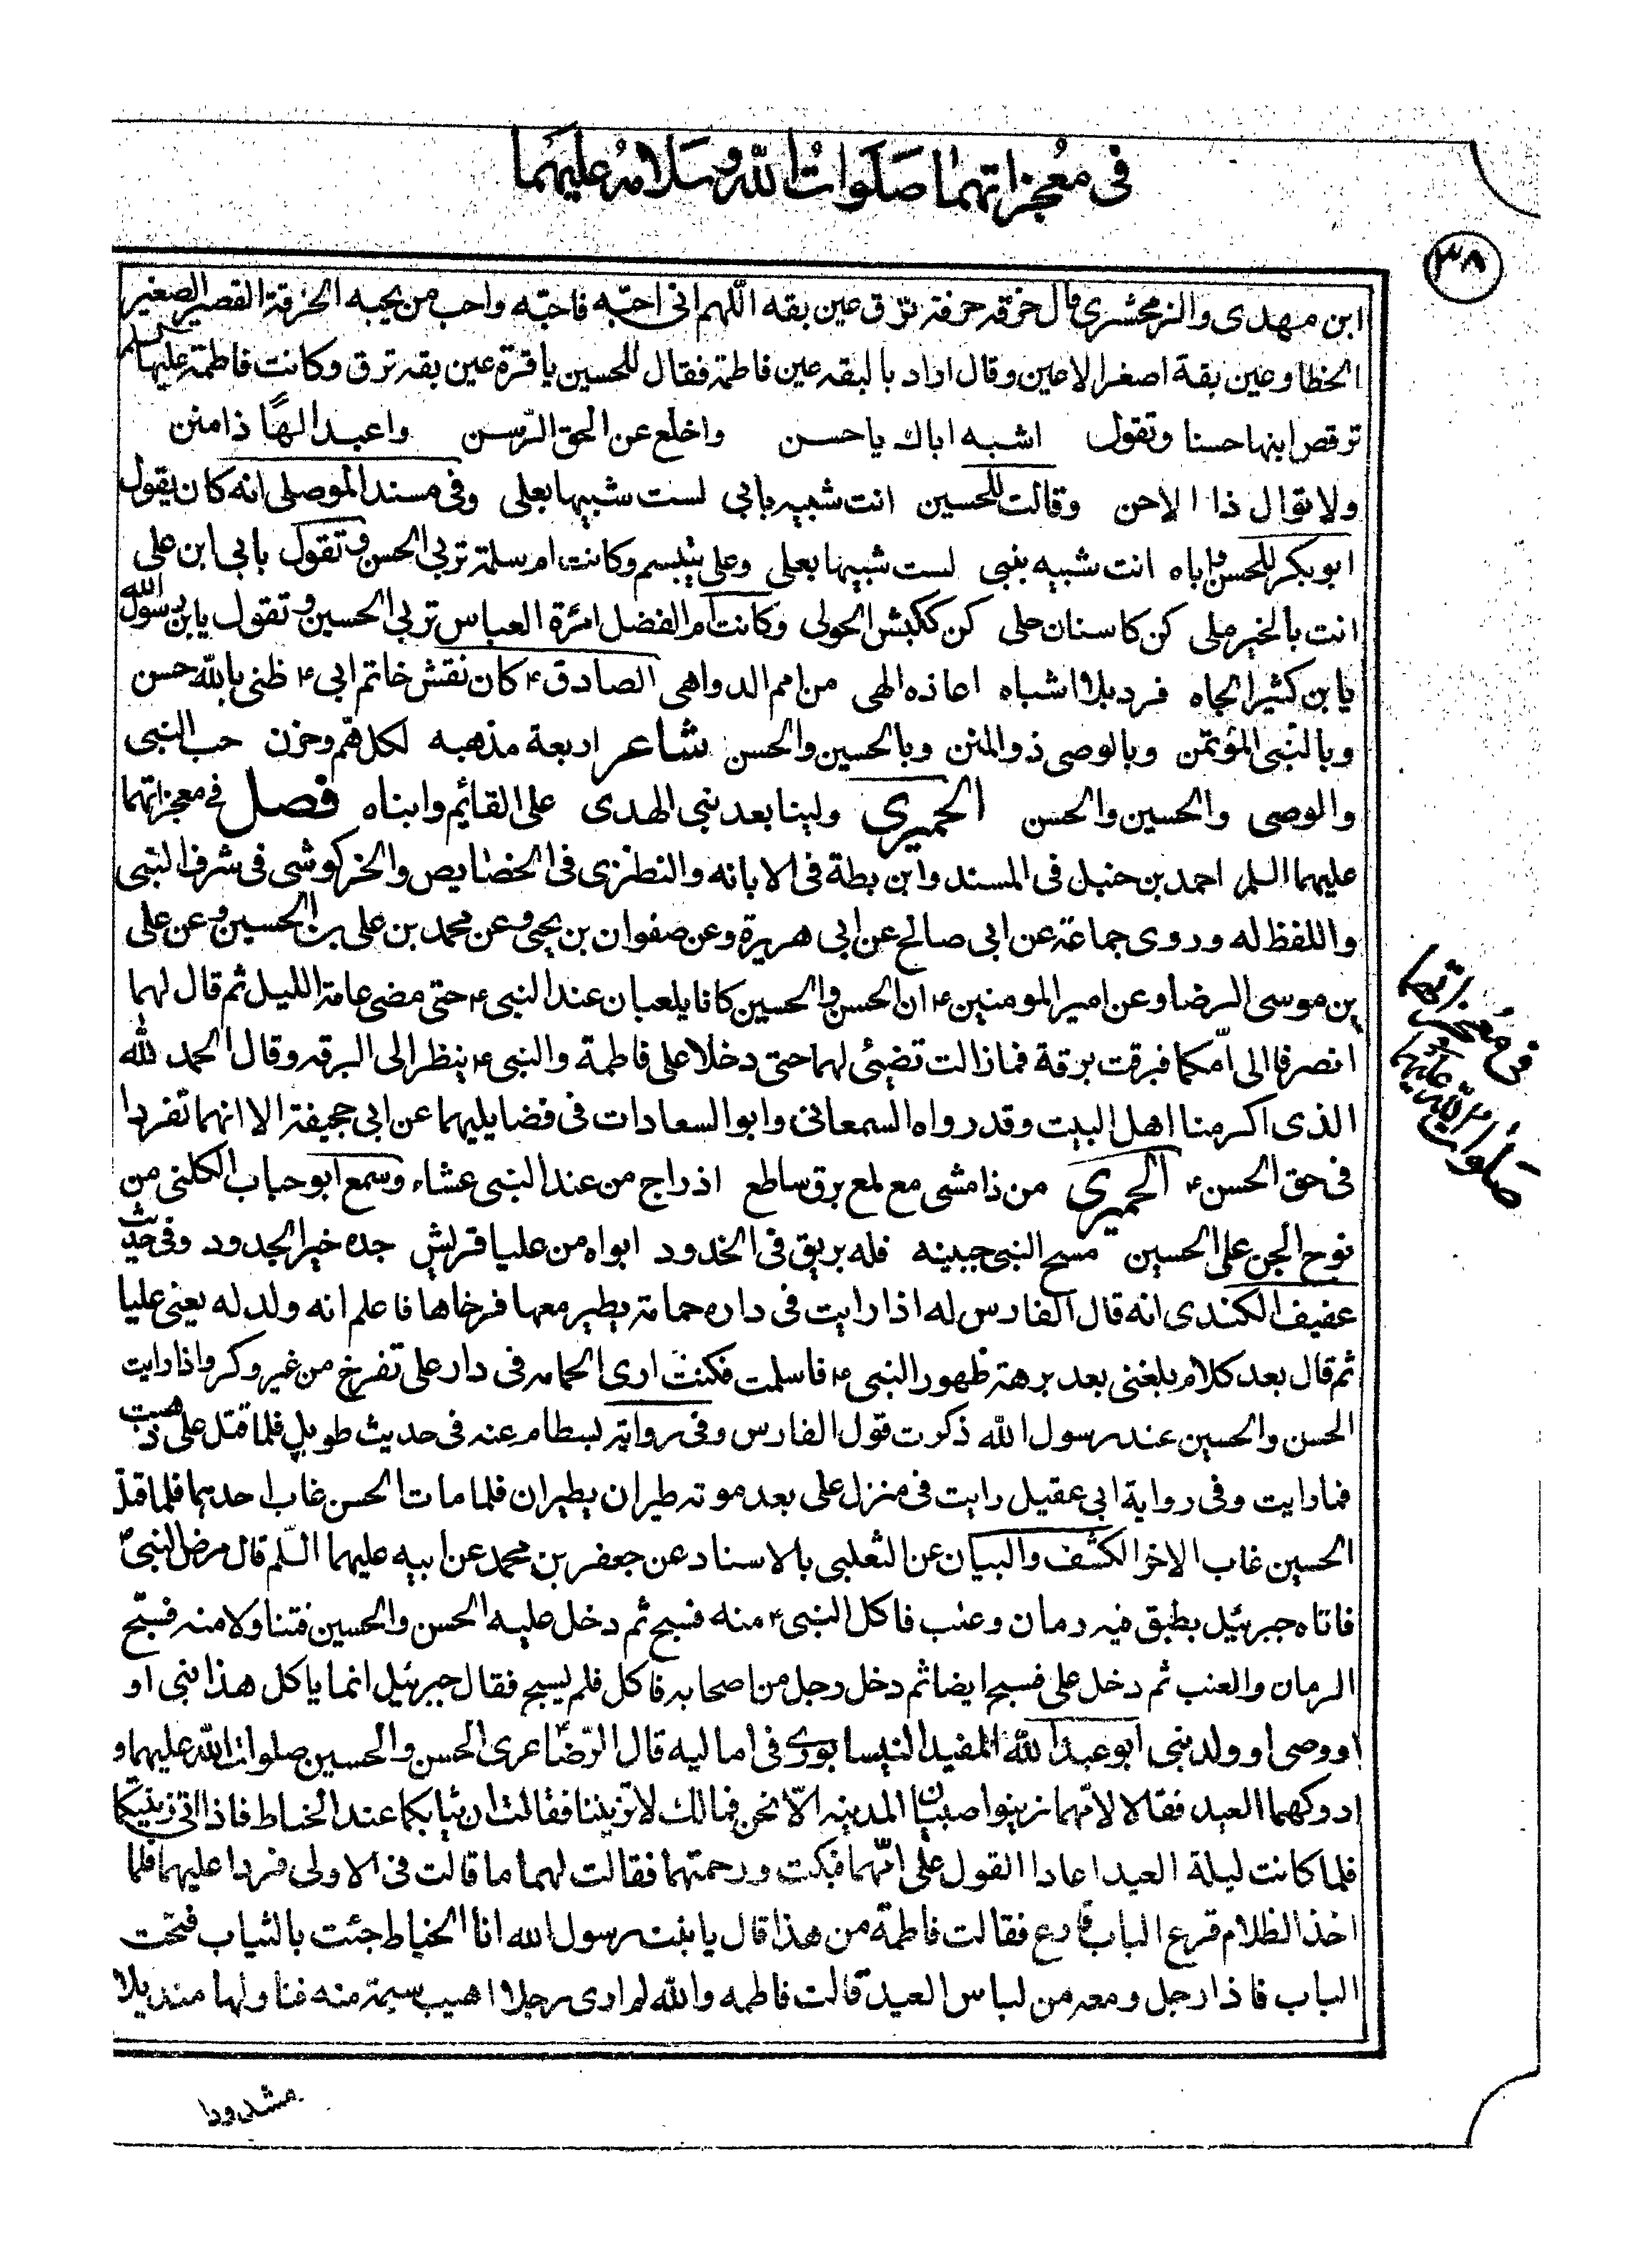 في معجزاتهما صلوات الله وسلامه عليهما
٣٨
ابن مهدى والزمخشرى قال حزقه حزقة ترق عين بقه اللهم انى احبه فاحبه واحب من يحبه الحزقة القصير الصغير
الخطا وعين بقة اصغر الاعين وقال اراد بالبقه عين فاطمة فقال للحسين يا قرة عين بقه ترق وكانت فاطمة عليها السلم
ترقص ابنها حسنا وتقول اشبه اباك يا حسن واخلع عن الحق الرسن واعبد الها ذا منن
ولا توال ذا الاحن وقالت للحسين انت شبيه بابى لست شبيها بعلى وفى مسند الموصلى انه كان يقول
ابو بكر للحسن واباه انت شبيه بنبى لست شبيها بعلى وعلى يتبسم وكانت ام سلمة تربى الحسن وتقول بابى ابن على
انت بالخير ملى كن كاسنان حلى كن ككبش الحولى وكانت ام الفضل امرئة العباس تربى الحسين وتقول يا بن رسول الله
يا بن كثير الجاه فرد بلا اشباه اعاذه الهى من امم الدواهى الصادق ع كان نقش خاتم ابى ع ظنى بالله حسن
وبالنبى المؤتمن وبالوصى ذو المنن وبالحسين والحسن شاعر اربعة مذهبه لكل هم وحزن حب النبى
والوصى والحسين والحسن الحميري ولينا بعد نبى الهدى على القائيم وابناه فصل فى معجزاتهما
عليهما السلم احمد بن حنبل فى المسند وابن بطة فى الابانه والنطنزى فى الخصايص والخركوشى فى شرف النبى
واللفظ له وروى جماعة عن ابى صالح عن ابى هريرة وعن صفوان بن يحيى وعن محمد بن على بن الحسين وعن على
بن موسى الرضا وعن امير المومنين ع ان الحسن والحسين كانا يلعبان عند النبى ع حتى مضى عامة الليل ثم قال لهما
انصرفا الى امكما فبرقت برقة فما زالت تضيئ لهما حتى دخلا على فاطمة والنبى ع ينظر الى البرقه وقال الحمد لله
الذى اكرمنا اهل البيت وقد رواه السمعانى وابو السعادات فى فضايليهما عن ابى جحيفة الا انهما تفردا
فى حق الحسن ع الحميري من ذا مشى مع لمع برق ساطع اذ راح من عند النبى عشاء وسمع ابو حباب الكلنى من
نوح الجن على الحسين مسح النبى جبينه فله بريق فى الخدود ابواه من عليا قريش جده خير الجدود وفى حديث
عفيف الكندى انه قال الفارس له اذا رايت فى داره حمامة يطير معها فرخاها فاعلم انه ولد له يعنى عليا
ثم قال بعد كلام بلغنى بعد برهة ظهور النبى ع فاسلمت فكنت ارى الحمامه فى دار على تفرخ من غير وكر واذا رايت
الحسن والحسين عند رسول الله ذكرت قول الفارس وفى رواية بسطام عنه فى حديث طويل فلما قتل على ذهبت
فما رايت وفى رواية ابى عقيل رايت فى منزل على بعد موته طيران يطيران فلما مات الحسن غاب احديهما فلما قتل
الحسين غاب الاخر الكشف والبيان عن الثعلبى بالاسناد عن جعفر بن محمد عن ابيه عليهما السلم قال مرض النبى ع
فاتاه جبرئيل بطبق فيه رمان وعنب فاكل النبى ع منه فسبح ثم دخل عليه الحسن والحسين فتناولا منه فسبح
الرمان والعنب ثم دخل على فسبح ايضا ثم دخل رجل من اصحابه فاكل فلم يسبح فقال جبرئيل انما ياكل هذا نبى او
او وصى او ولد نبى ابو عبد الله المفيد النيسابورى فى اماليه قال الرضا ع عرى الحسن والحسين صلوات الله عليهما و
ادركهما العيد فقالا لامهما زينوا صبيان المدينه الا نحن فما لك لا تزيننا فقالت ان ثيابكما عند الخياط فاذا اتى زينتكما
فلما كانت ليلة العيد اعادا القول على امهما فبكت ورحمتهما فقالت لهما ما قالت فى الاولى فردا عليهما فلما
اخذ الظلام قرع الباب قارع فقالت فاطمة من هذا قال يا بنت رسول الله انا الخياط جئت بالثياب ففتحت
الباب فاذا رجل ومعه من لباس العيد قالت فاطمه والله لم ارى رجلا اهيب سيمة منه فناولها منديلا
مشدودا
فى معجزاتهما
صلوات الله عليهما